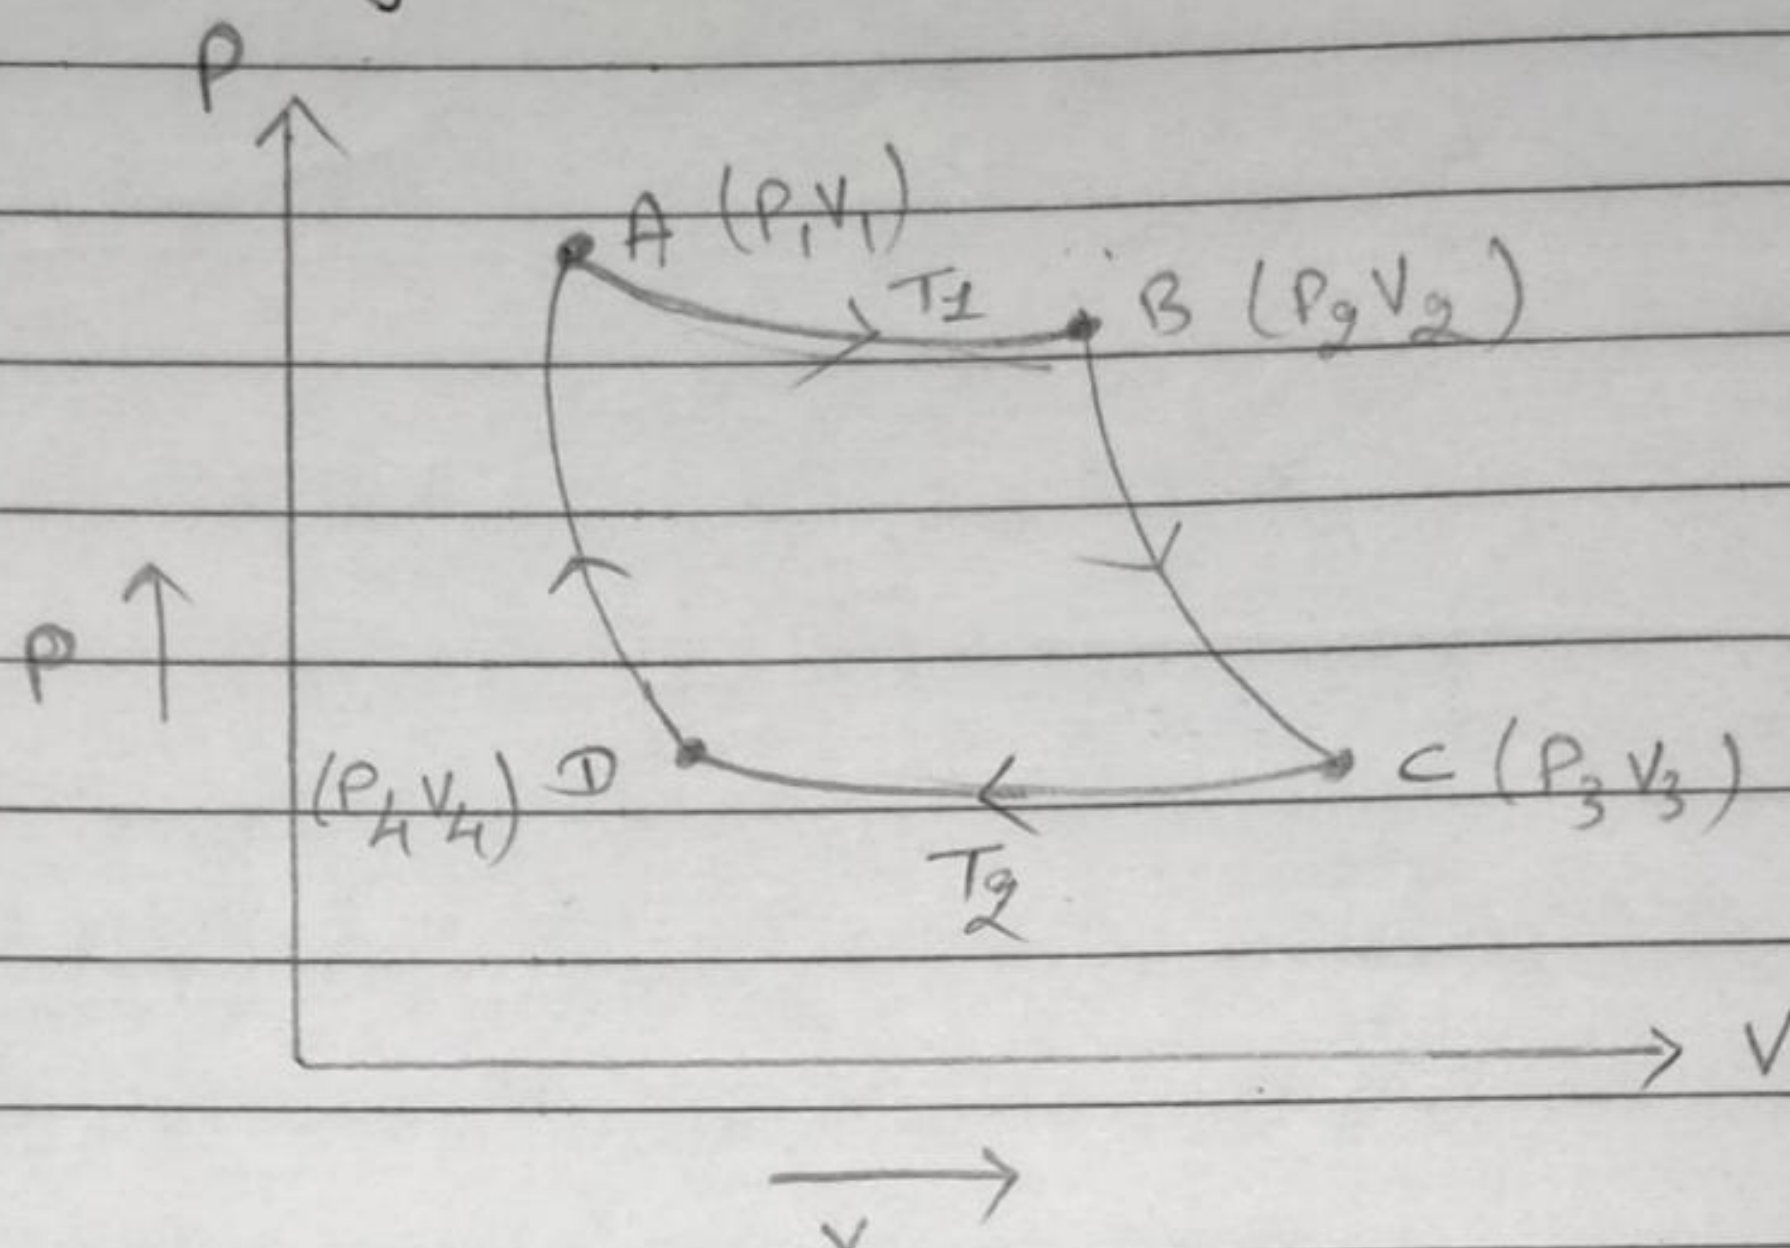 P
A (P1V1)
T1
B (P2V2)
P
(P4V4) D
C (P3V3)
T2
V
V